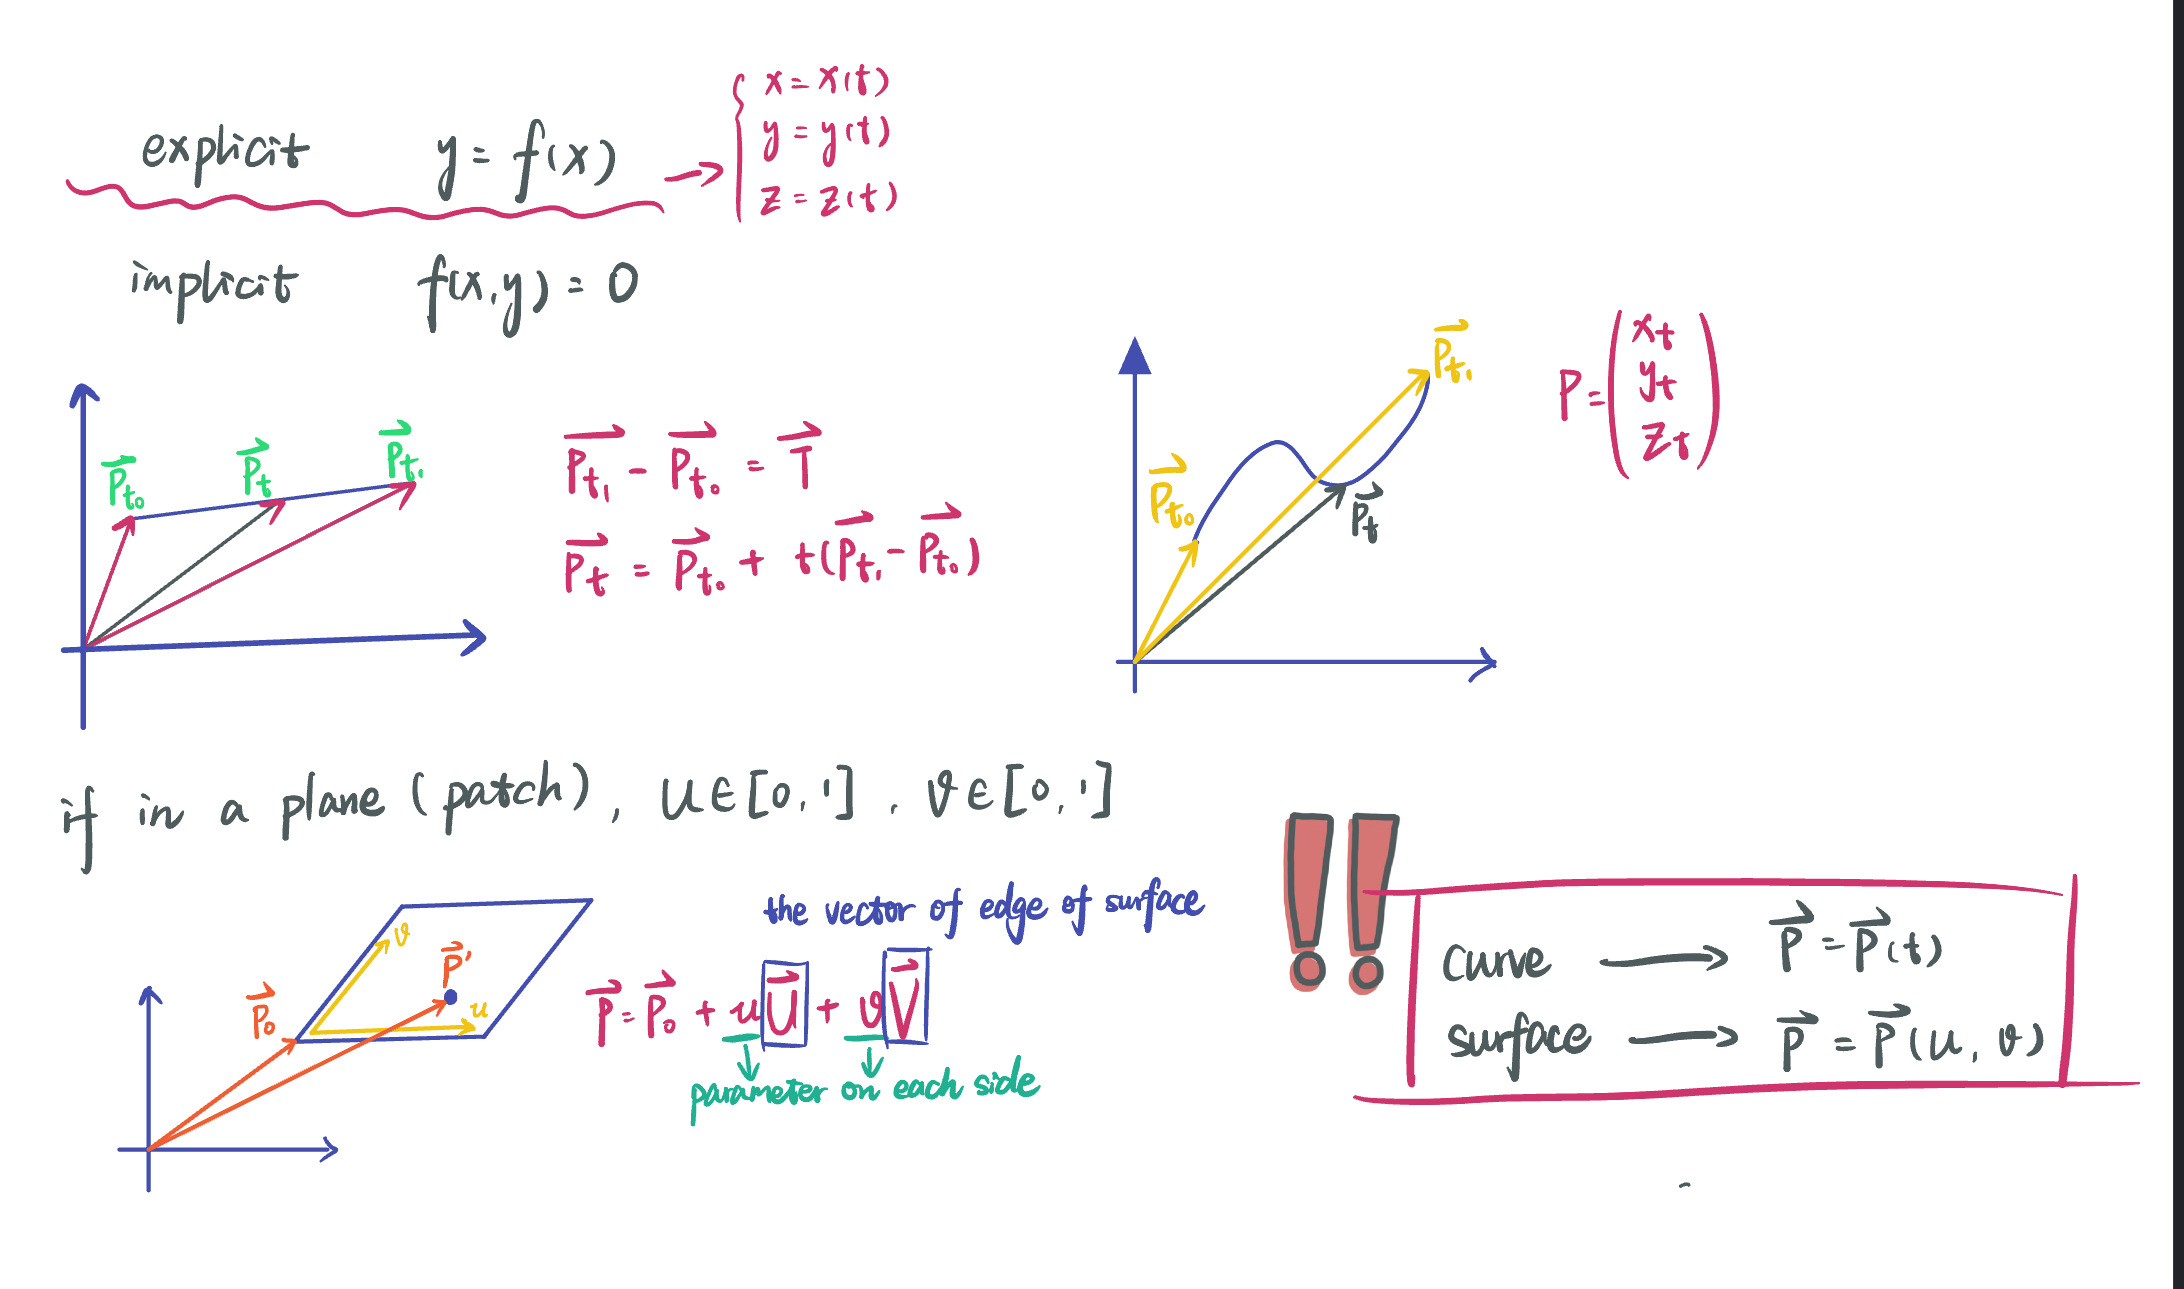 explicit y = f(x) → { x = x(t)
y = y(t)
z = z(t)
implicit f(x,y) = 0
P⃗t₀ P⃗t P⃗t₁
P⃗t₁ - P⃗t₀ = T⃗
P⃗t = P⃗t₀ + t(P⃗t₁ - P⃗t₀)
P⃗t₁
P⃗t₀
P⃗t
P = (xt
yt
zt)
if in a plane (patch), u∈[0,1], v∈[0,1]
the vector of edge of surface
v
P⃗'
u
P⃗₀
P⃗ = P⃗₀ + uU⃗ + vV⃗
parameter on each side
!!
curve → P⃗ = P⃗(t)
surface → P⃗ = P⃗(u, v)